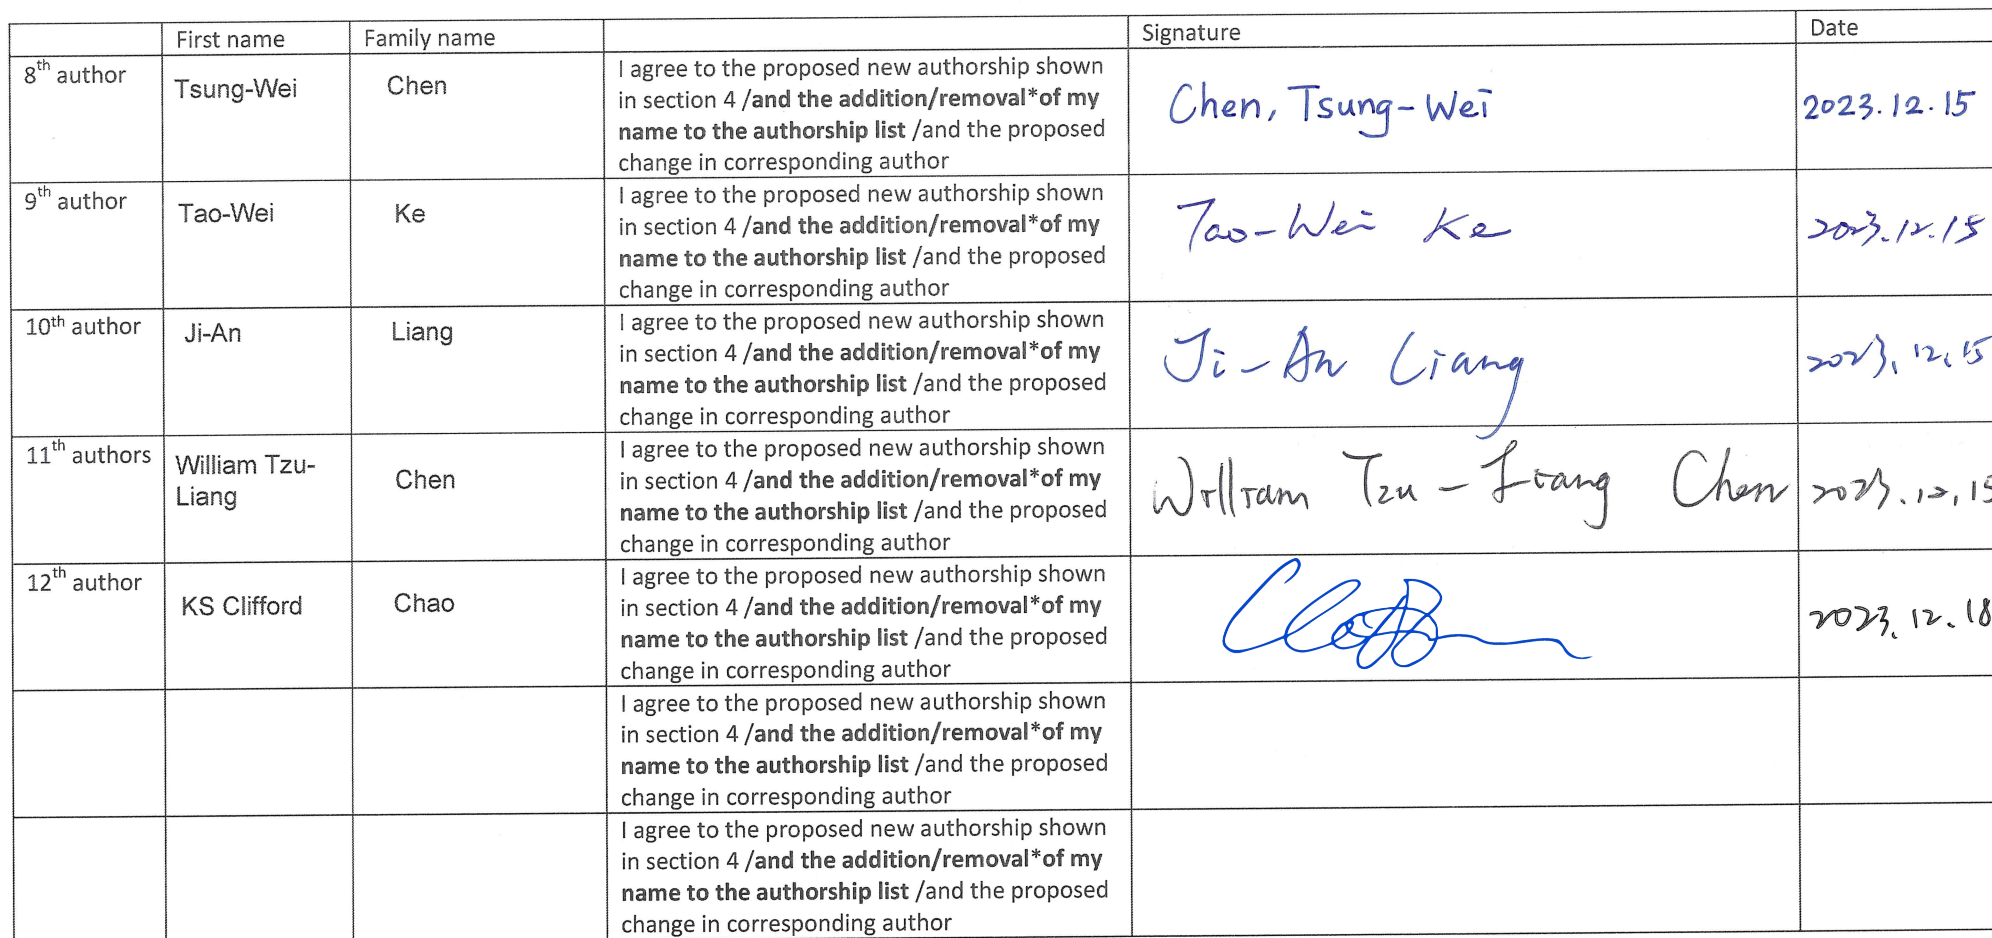 First name Family name Signature Date
8th author Tsung-Wei Chen I agree to the proposed new authorship shown
in section 4 /and the addition/removal*of my
name to the authorship list /and the proposed
change in corresponding author
Chen, Tsung-Wei 2023.12.15
9th author Tao-Wei Ke I agree to the proposed new authorship shown
in section 4 /and the addition/removal*of my
name to the authorship list /and the proposed
change in corresponding author
Tao-Wei Ke 2023.12.15
10th author Ji-An Liang I agree to the proposed new authorship shown
in section 4 /and the addition/removal*of my
name to the authorship list /and the proposed
change in corresponding author
Ji-An Liang 2023.12.15
11th authors William Tzu-
Liang
Chen I agree to the proposed new authorship shown
in section 4 /and the addition/removal*of my
name to the authorship list /and the proposed
change in corresponding author
William Tzu-Liang Chen 2023.12.15
12th author KS Clifford Chao I agree to the proposed new authorship shown
in section 4 /and the addition/removal*of my
name to the authorship list /and the proposed
change in corresponding author
2023.12.18
I agree to the proposed new authorship shown
in section 4 /and the addition/removal*of my
name to the authorship list /and the proposed
change in corresponding author
I agree to the proposed new authorship shown
in section 4 /and the addition/removal*of my
name to the authorship list /and the proposed
change in corresponding author